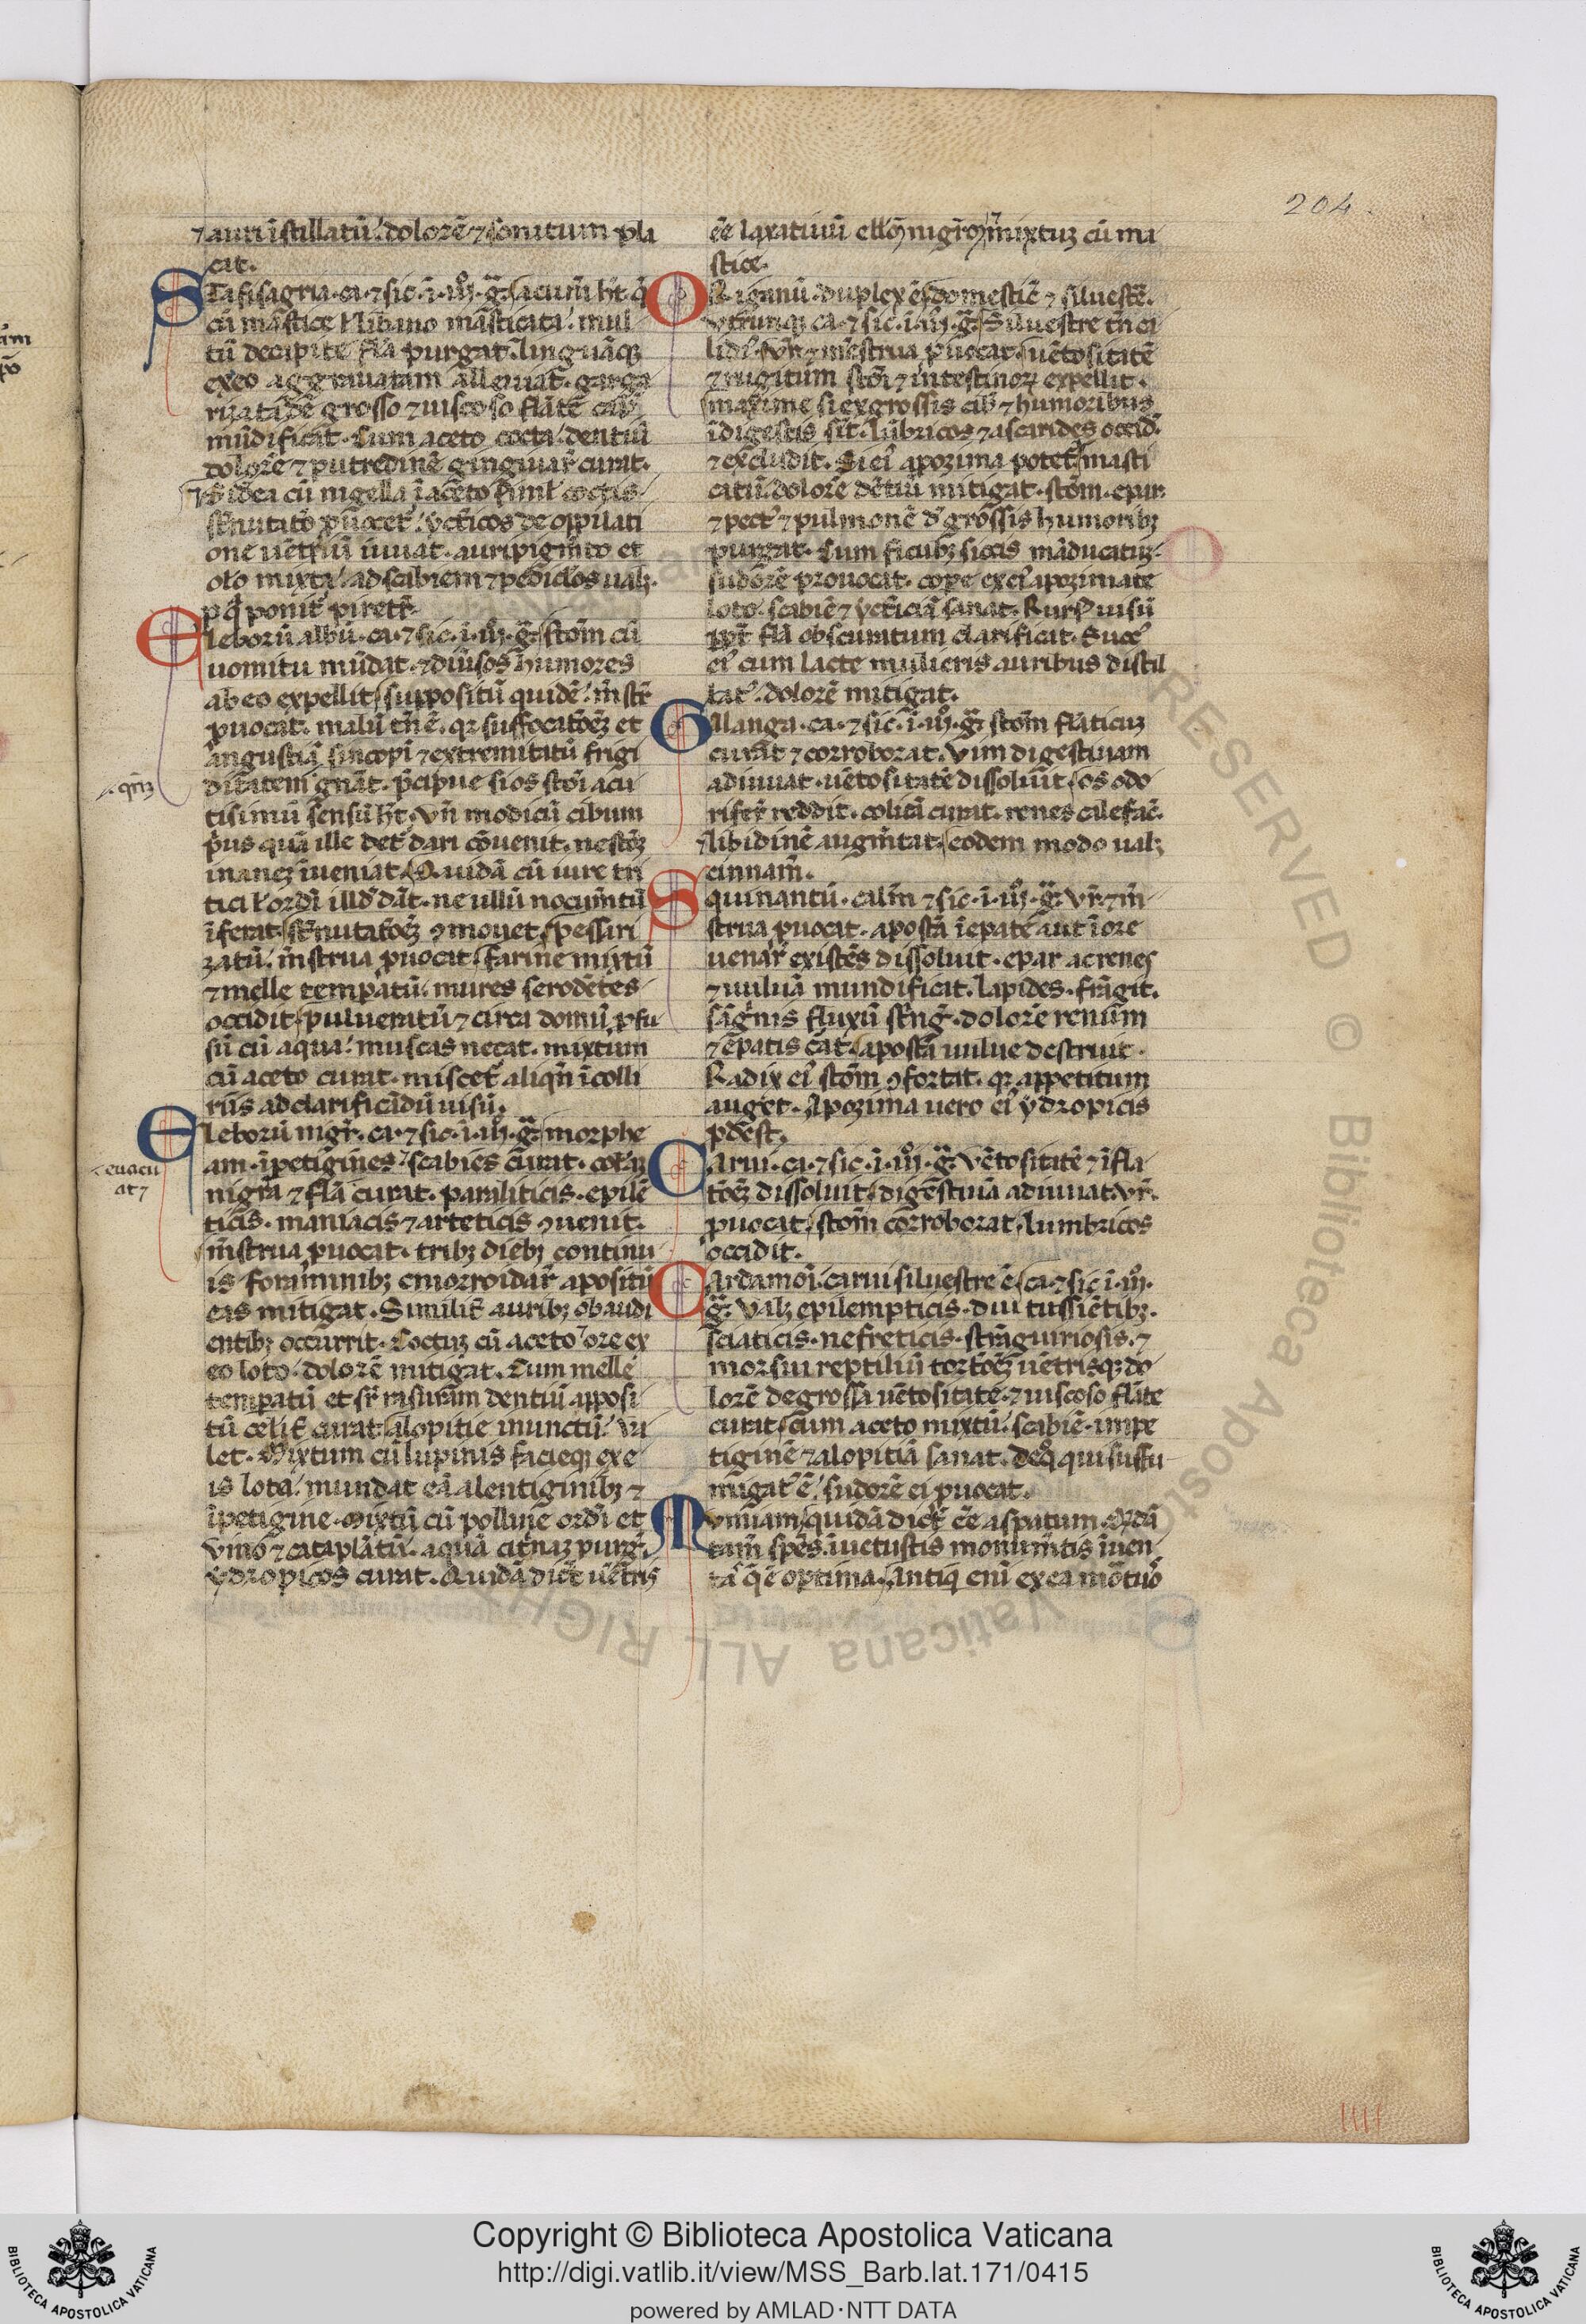 204.
⁊ auri ĩstillatũ. dolorẽ ⁊ sonitum pla
cat.
Stafisagria. ca. ⁊ sic. ĩ. iiiº. g̃.
cũ mãstice ł libano mãsticata. mul
tũ decipite fla purgat. linguãqꝫ
ex eo aggrauatam alleuiat. garga
grosso ⁊ uiscoso
mũdificat. Cum aceto cocta. dentiũ
dolorẽ ⁊ putredinẽ gingiuaꝝ curat.
Eidẽa cũ nigella ĩ aceto simł coctis
yctericos de oppilati
one iuuat. auripigm̃to et
olo mixta. ad scabiem ⁊ pediclos ualꝫ.
ponit᷑ piretr̃.
Eleborũ albũ. ca. ⁊ sic. ĩ. iiiº. g̃. stom̃ cũ
uomitu mũdat. ⁊ diũsos humores
ab eo expellit. suppositũ quidẽ. m̃str̃
ꝓuocat. malũ tñ ẽ. qꝛ suffocatõeꝫ et
angustiã sincopĩ ⁊ extremitatũ frigi
ditatem gñat. p̃cipue si os stoĩ acu
tisimũ sensũ ht̃. vñ modicũ cibum
p̃us quã ille det᷑ dari cõuenit. ne stom̃
inaneꝫ ĩueniat. Quidã cũ iure tri
tici ł ordĩ illd̃ dãt. ne ullũ nocum̃tũ
ĩferat. st̃nutatõeꝫ ꝯmouet. pessari
zatũ. m̃strua ꝓuocat. Farine mixtũ
⁊ melle temꝑatũ. mures se rodẽtes
occidit. pulueratũ ⁊ circa domũ ꝑfu
sũ cũ aqua. muscas necat. mixtum
cũ aceto curat. miscet᷑ aliqñ ĩ colli
riis ad clarificãdũ uisũ.
Eleborũ nigr̃. ca. ⁊ sic. ĩ. iiiº. g̃. morphe
am. ĩpetigines. scabies curat. colꝝ
nigrã ⁊ flã curat. paraliticis. epilẽ
ticis. maniacis ⁊ arteticis ꝯuenit.
m̃strua ꝓuocat. tribꝫ diebꝫ continu
is foraminibꝫ emorroidaꝝ apositũ
eas mitigat. Similit᷑ auribꝫ obaudi
entibꝫ occurrit. Coctuꝫ cũ aceto. ore ex
eo loto. dolorẽ mitigat. Cum melle
temꝑatũ et sr̃ rasuram dentiũ apposi
tũ celit᷑ curat. alopitie inunctũ. ua
let. Mixtum cũ lupinis facieqꝫ ex e
is lota. mundat eã a lentiginibꝫ ⁊
ĩpetigine. Mixtũ cũ polline ordĩ et
vino ⁊ cataplãtũ. aquã citrinaꝫ purg̃.
ydropicos curat. Quidã dicũt uẽtris
qñꝫ
euacu
at ⁊
ẽe laxatiuũ ełłoꝝ nigroꝝ mixtuꝫ cũ ma
stice.
Origanũ. duplex ẽ. domesticũ ⁊ siluestẽ.
vtrunqꝫ ca. ⁊ sic. ĩ. iiiº. g̃. Siluestre tñ ca
lidiꝰ. vr̃. ⁊ mẽstrua ꝓuocat. uẽtositatẽ
⁊ rugitum stoĩ ⁊ intestinoꝝ expellit.
maxime si ex grossis cibꝫ ⁊ humoribus
ĩdigestis sit. lũbricos ⁊ ascarides occid̃.
⁊ excludit. Si eiꝰ apozima potet᷑. masti
catũ. dolorẽ dẽtiũ mitigat. stom̃. epar.
⁊ pectꝰ ⁊ pulmonẽ d̃ grossis humoribꝫ
purgat. Cum ficubꝫ siccis mãducatuꝫ.
sudorẽ prouocat. corpe ex eiꝰ apozimate
loto. scabiẽ ⁊ yctericiã sanat. Rursꝰ uisũ
ꝓpt̃ flã obscuratum clarificat. Succꝰ
eiꝰ cum lacte mulieris auribus distil
latꝰ. dolorẽ mitigat.
Galanga. ca. ⁊ sic. ĩ. iiiº. g̃. stom̃ flaticuꝫ
curat ⁊ corroborat. Vim digestiuam
adiuuat. uẽtositatẽ dissoluit. os odo
rifeꝝ reddit. colicã curat. renes calefac̃.
⁊ libidinẽ augm̃tat. eodem modo ualꝫ
cinnam̃.
Squinantũ. calm̃ ⁊ sic. ĩ. iiiº. g̃. vr̃. ⁊ m̃
strua ꝓuocat. apostã ĩ epate aut ĩ ore
uenaꝝ existẽs dissoluit. epar ac renes
⁊ uuluã mundificat. lapides. frãgit.
sãgnis fluxũ strĩg̃. dolorẽ renum
⁊ epatis cat. apostã uulue destruit.
Radix eiꝰ stom̃ ꝯfortat. qꝛ appetitum
auget. Apozima uero eiꝰ ydropicis
ꝓdest.
Carui. ca. ⁊ sic. ĩ. iiiº. g̃. vẽtositatẽ ⁊ ĩfla
tõeꝫ dissoluit. digestiuã adiuuat. vr̃.
ꝓuocat. stom̃ corroborat. lumbricos
occidit.
Cardamoĩ. carui siluestre ẽ. ca. ⁊ sic ĩ. iiiº.
g̃. valꝫ epilempticis. diu tussiẽtibꝫ.
sciaticis. nefreticis. strãguriosis. ⁊
morsui reptiliũ tortõeꝫ uẽtrisqꝫ do
lorẽ de grossa uẽtositate. ⁊ uiscoso flãte
curat. cum aceto mixtũ. scabiẽ. impe
tiginẽ ⁊ alopitiã sanat. deqᵒ qui suffu
migatꝰ ẽ. sudorẽ ei ꝓuocat.
Mvmiam quidã dicũt ẽe aspaltum. Qdã
tam̃ spẽs. ĩ uetustis monum̃tis ĩuen
ta q̃ ẽ optima. Antiq̃ enĩ ex ea mortuoꝝ
IIII
Copyright © Biblioteca Apostolica Vaticana
http://digi.vatlib.it/view/MSS_Barb.lat.171/0415
powered by AMLAD·NTT DATA
BIBLIOTECA APOSTOLICA VATICANA
BIBLIOTECA APOSTOLICA VATICANA